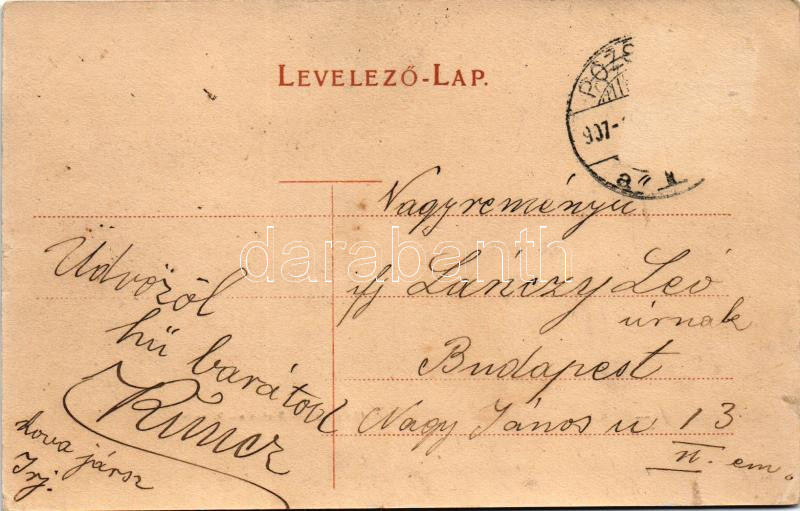 LEVELEZŐ-LAP.
RÓZS
907-
a
Nagyreményü
ifj Lánczy Leó
úrnak
Budapest
Nagy János u 13
II. em.
Üdvözöl
hü barátod
Kuncz
hova jársz
Irj.
darabanth